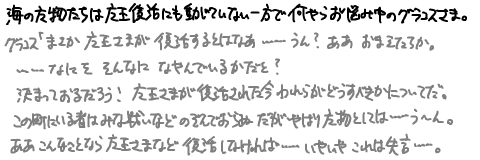 海の魔物たちは魔王復活にも動じていない一方で何やらお悩み中のグラコスさま。
グラコス「まさか 魔王さまが 復活するとはなあ……うん？ああ おまえたちか。
……なにを そんなに なやんでいるかだと？
決まっておるだろう！ 魔王さまが復活された今 われらがどうすべきかについてだ。
この町にいる者はみな戦いなどのぞんでおらぬ だが やはり魔物としては……う～ん。
ああ こんなことなら 魔王さまなど 復活しなければ……いやいや これは失言……。